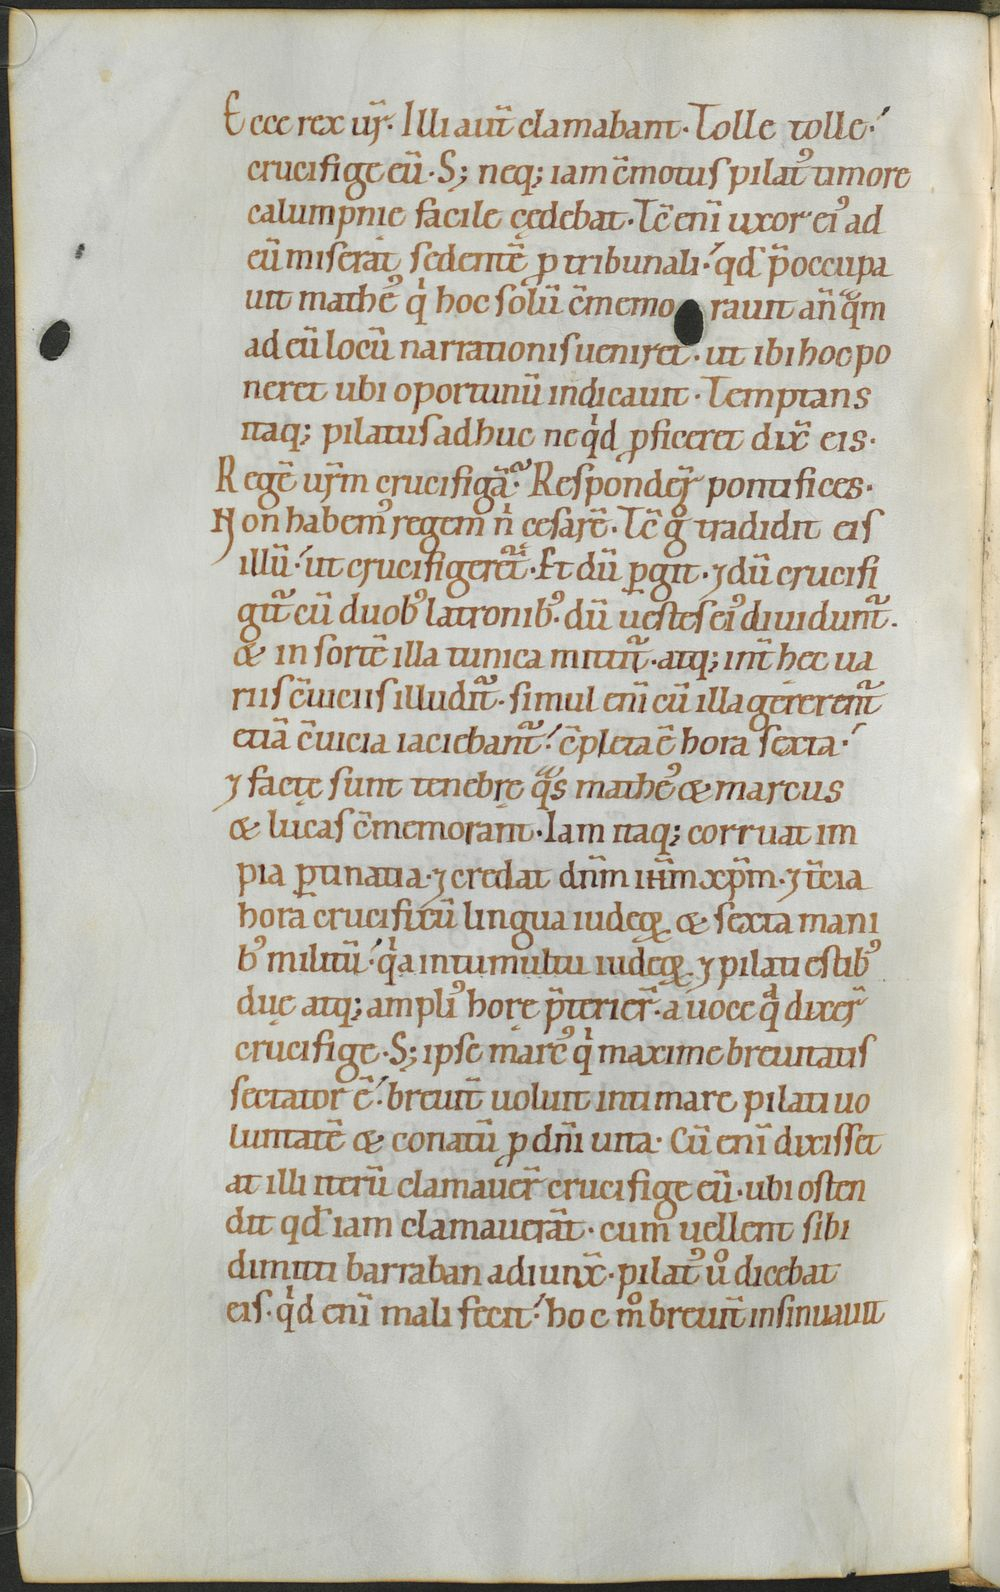 Ecce rex ur̄. Illi aut̄ clamabant. Tolle tolle.
crucifige eū. S; neq; iam c̄motus pilatꝰ timore
calumpnie facile cędebat. Tc̄ eni̅ uxor eiꝰ ad
eū miserat sedentē ꝓ tribunali. qd̄ p̄occupa
uit matheꝰ qͥ hoc solū c̄memorauit anq̄m
ad eū locū narrationis ueniret. ut ibi hoc po
neret ubi oportunū indicauit. Temptans
itaq; pilatus adhuc ne qͥd ꝓficeret dix̄ eis.
Regē ur̄m crucifigā. Respondeꝶ pontifices.
Non habemꝰ regem nͥ cesarē. Tc̄ gͦ tradidit eis
illū. ut crucifigeret᷑. Et dū ꝑgit. ⁊ dū crucifi
git᷑ cū duobꝰ latronibꝰ. dū uestes eiꝰ diuidunt᷑.
& in sortē illa tunica mittit᷑. atq; int̄ hec ua
riis c̄uiciis illudit᷑. simul eni̅ cū illa gererent᷑
etiā c̄uicia iaciebant᷑. c̄pleta ē hora sexta.
⁊ factę sunt tenebrę qͣs matheꝰ & marcus
& lucas c̄memorant̄. Iam itaq; corruat im
pia ꝑtinatia. ⁊ credat dn̄m ih̄m xp̄m. ⁊ t̄cia
hora crucifixū lingua iudeoꝝ & sexta mani
bꝰ militū. qͥa in tumultu iudeoꝝ ⁊ pilati estibꝰ
duę atq; ampliꝰ horę p̄terier̄. a uoce qͣ dixer̄
crucifige. S; ipse marcꝰ qͥ maxime breuitatis
sectator ē. breuit̄ uoluit intimare pilati uo
luntatē & conatū ꝓ dn̄i uita. Cū eni̅ dixisset
at illi iterū clamauer̄ crucifige eū. ubi osten
dit qd̄ iam clamauerāt. cum uellent sibi
dimitti barraban adiunx̄. pilatꝰ uͦ dicebat
eis. qͥd eni̅ mali fecit. hoc mͦ breuit̄ insinuauit